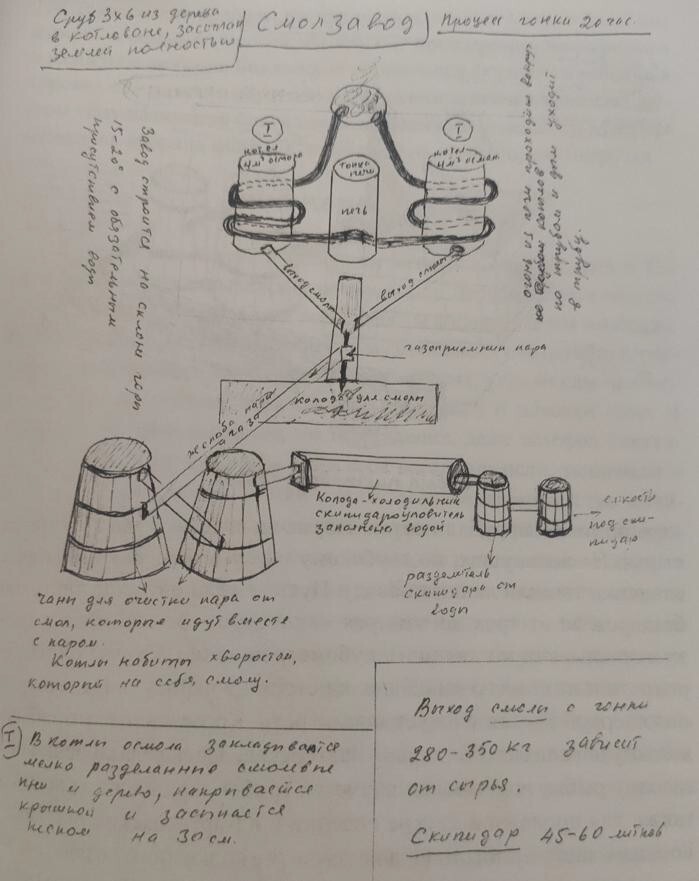 Сруб 3х6 из дерева
в котловане, засыпан
землей полностью
Смолзавод
Процесс гонки 20 час.
Завод строится на склоне горы
15-20° с обязательным
присутствием воды
I
котел
4м³ осмола
I
котел
4м³ осмол.
топка
печи
печь
дым и
уходит
в трубу.
выход смолы
выход смолы
газоприемник пара
колода для смолы
желоба пара
и газа
Колода-холодильник
скипидароуловитель
заполнена водой
емкости
под ски-
пидар
разделитель
скипидара от
воды
чаны для очистки пара от
смол, которые идут вместе
с паром.
Котлы набиты хворостом,
который на себя, смолу.
I В котлы осмола закладывается
мелко разделанные смолевые
пни и дерево, накрывается
крышкой и засыпается
песком на 30 см.
Выход смолы с гонки
280-350 кг зависит
от сырья.
Скипидар 45-60 литров